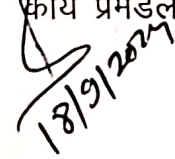 कार्य प्रमंडल
18/9/2024